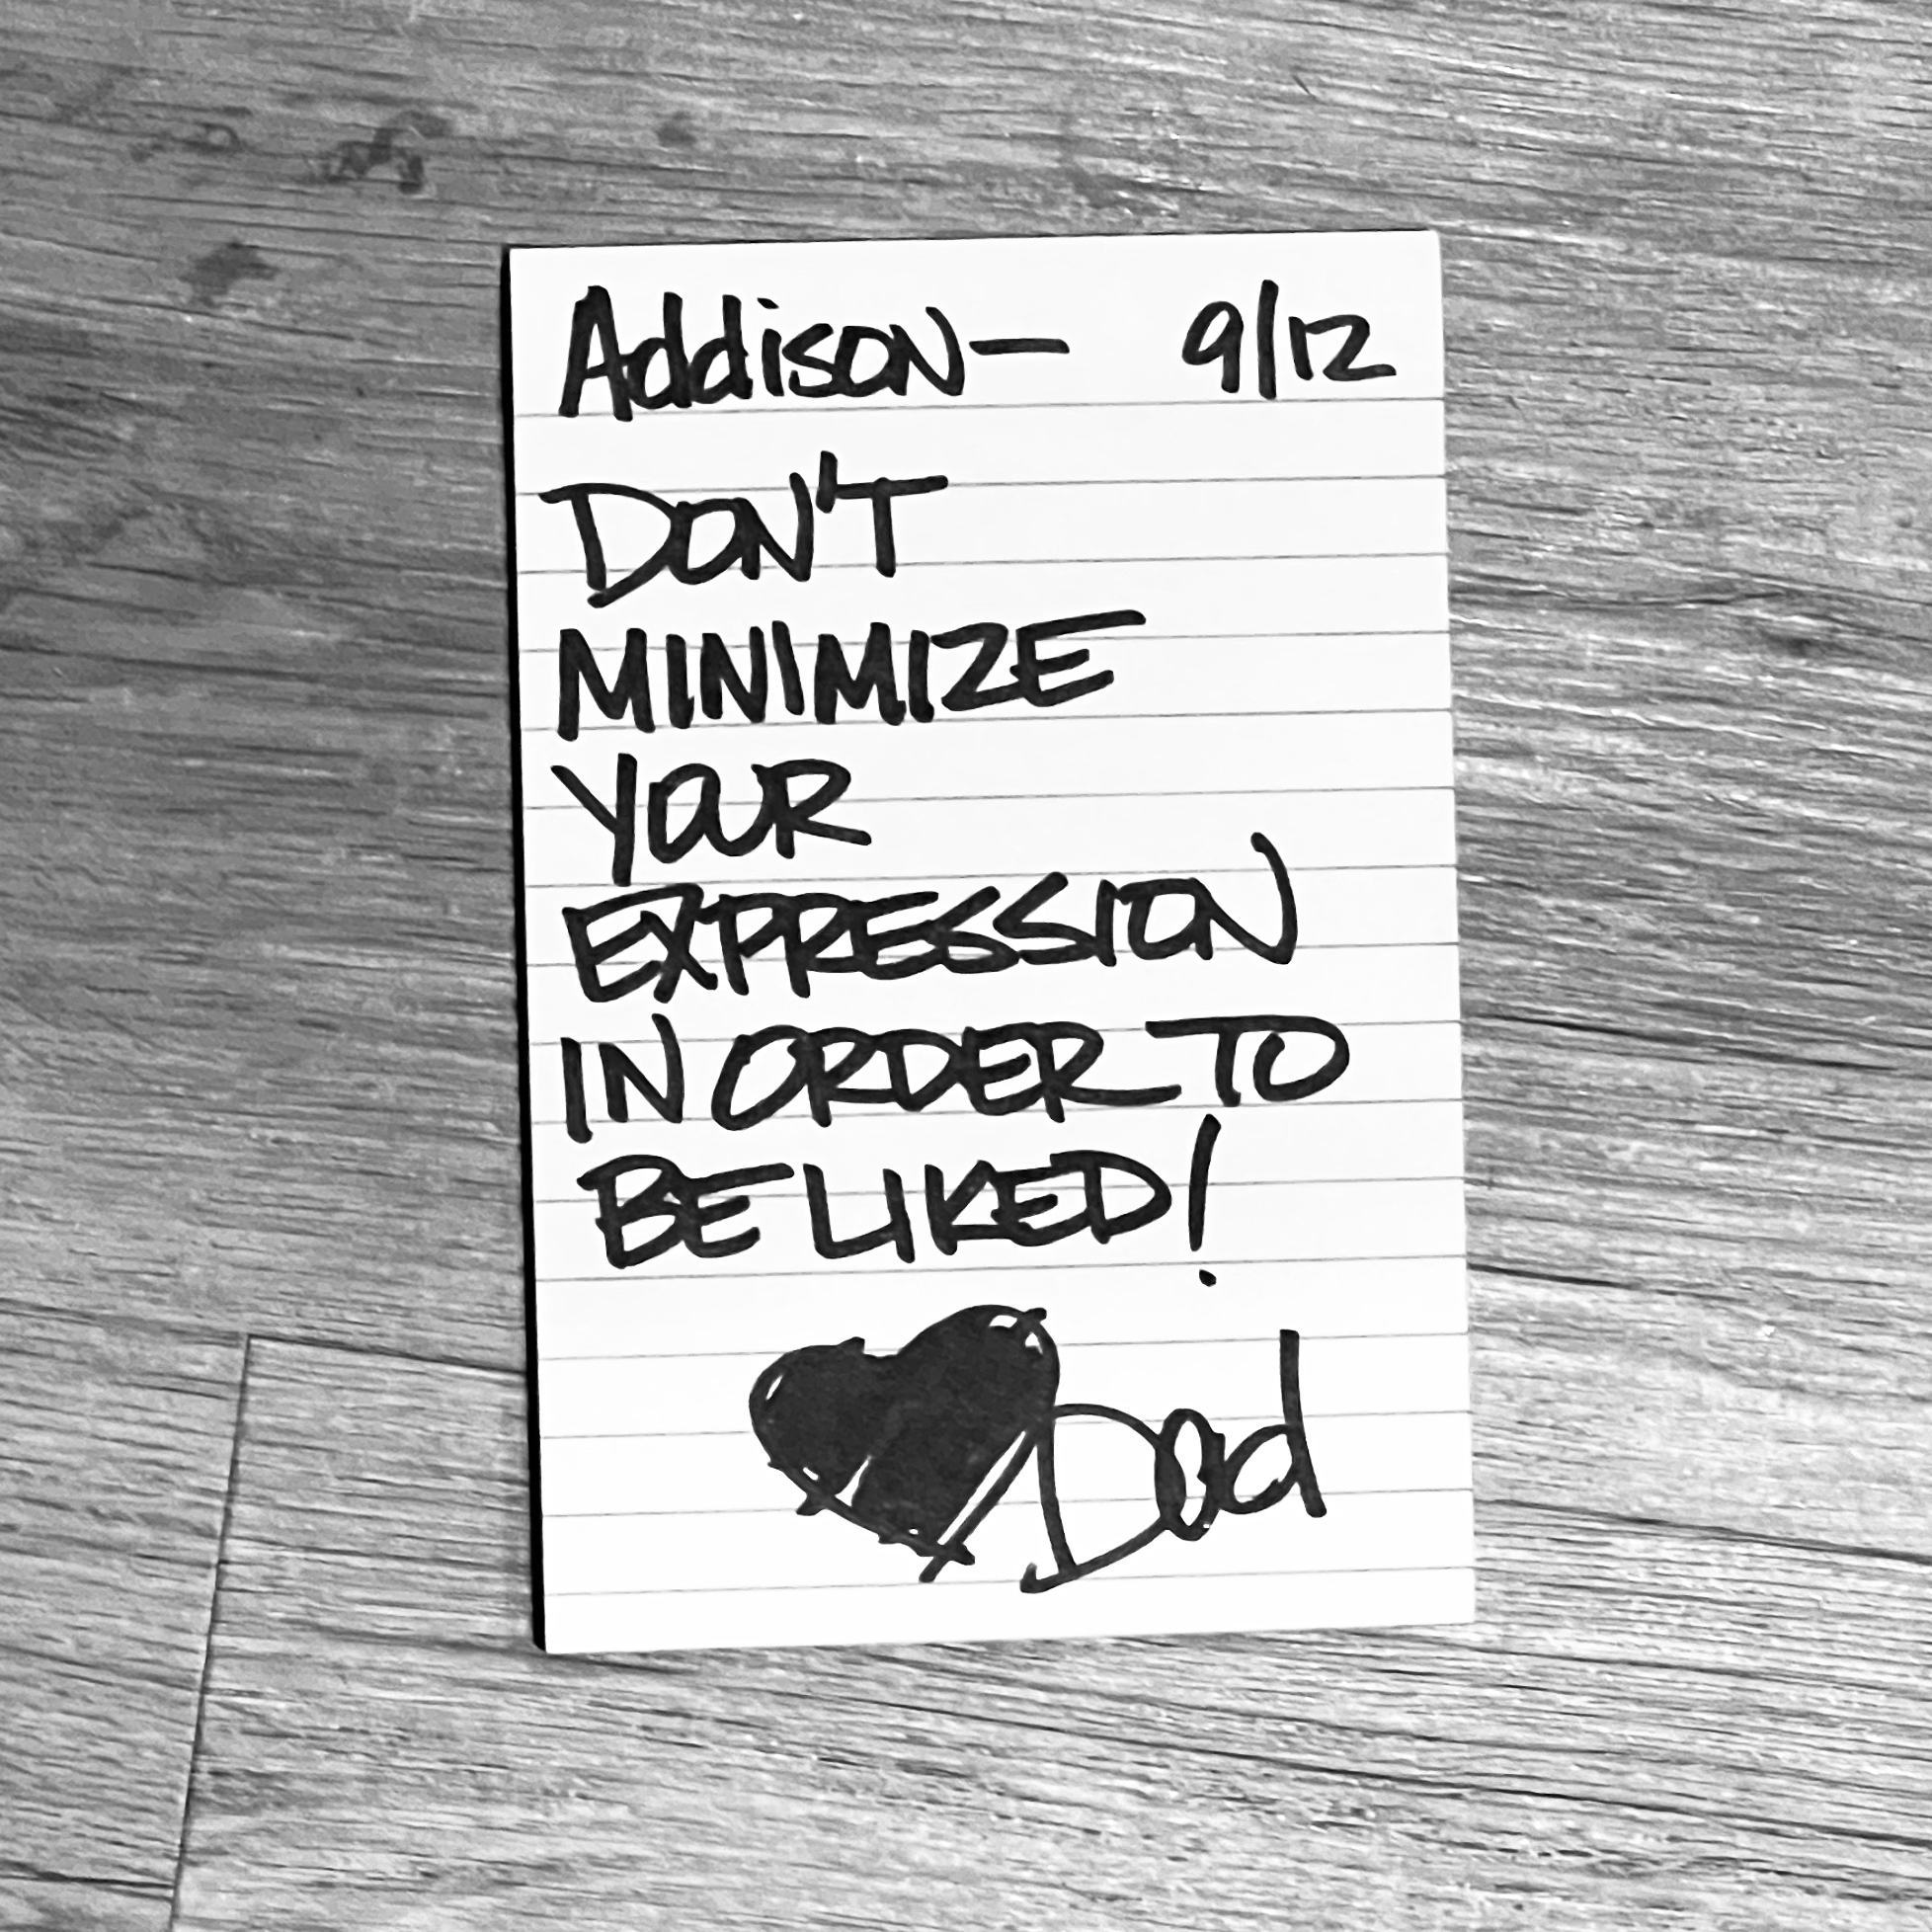 Addison— 9/12
DON'T
MINIMIZE
YOUR
EXPRESSION
IN ORDER TO
BE LIKED!
Dad